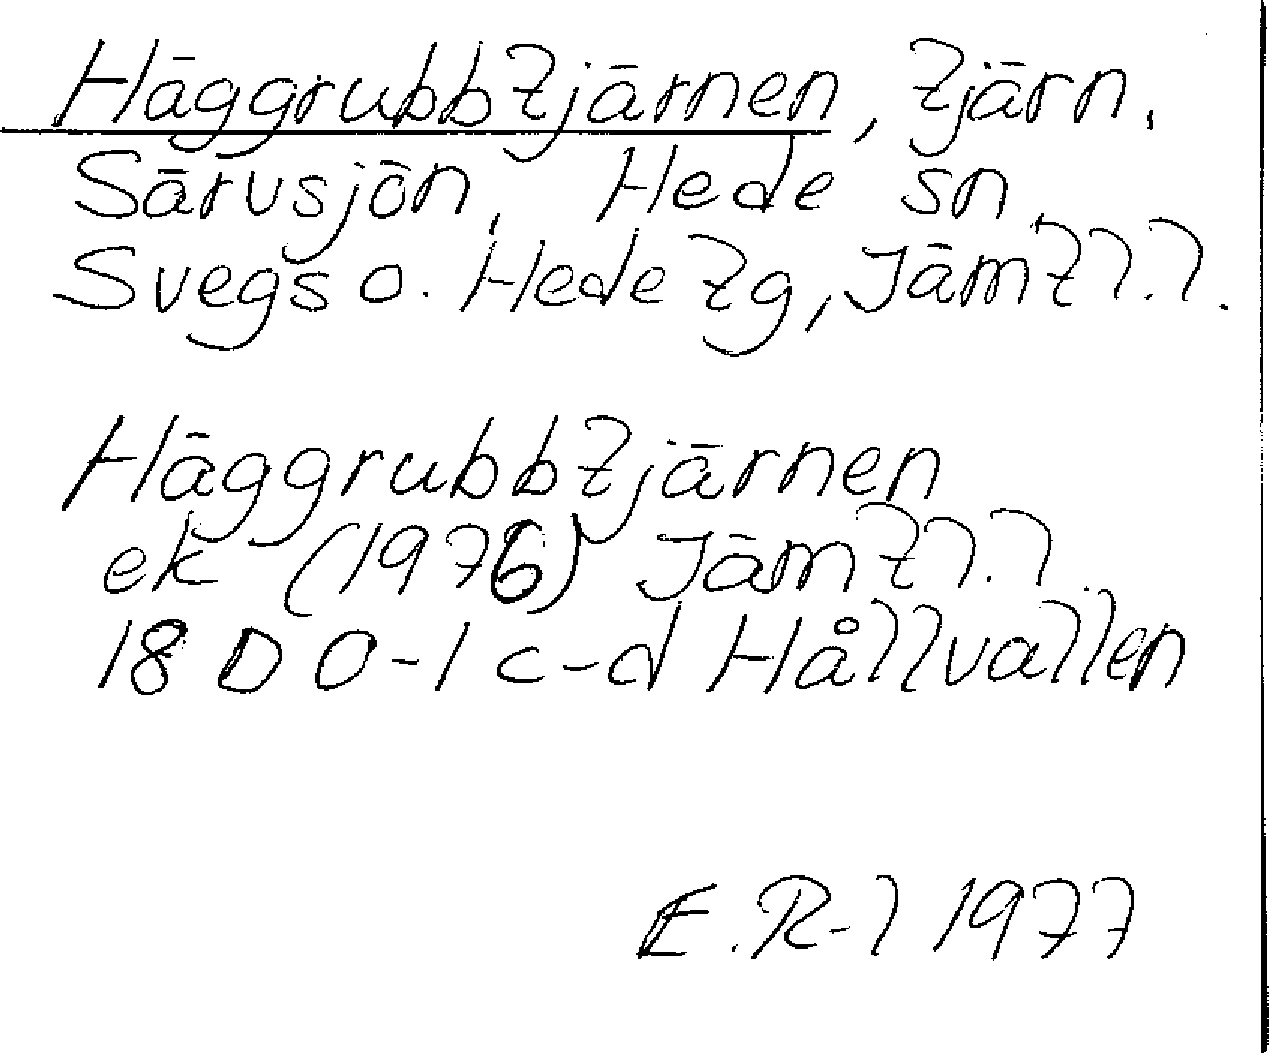 Häggrubbtjärnen, tjärn.
Särvsjön, Hede sn,
Svegs o. Hede tg, Jämtl.l.
Häggrubbtjärnen
ek (1976) Jämtl.l.
18 D 0-1 c-d Hållvallen
E.R-l 1977